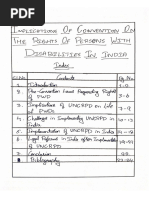 IMPLICATIONS OF CONVENTION ON
THE RIGHTS OF PERSONS WITH
DISABILITIES IN INDIA
Index
Contents
Pg. No.
1. Introduction
2. Pre-Convention Laws Regarding Rights
of PWD
3. Implications of UNCRPD in
4. Challenge in Implementing UNCRPD in
India
5. Implementation of UNCRPD in India
6. Legal Reforms in India after Implications of
UNCRPD
7. Conclusion
Bibliography